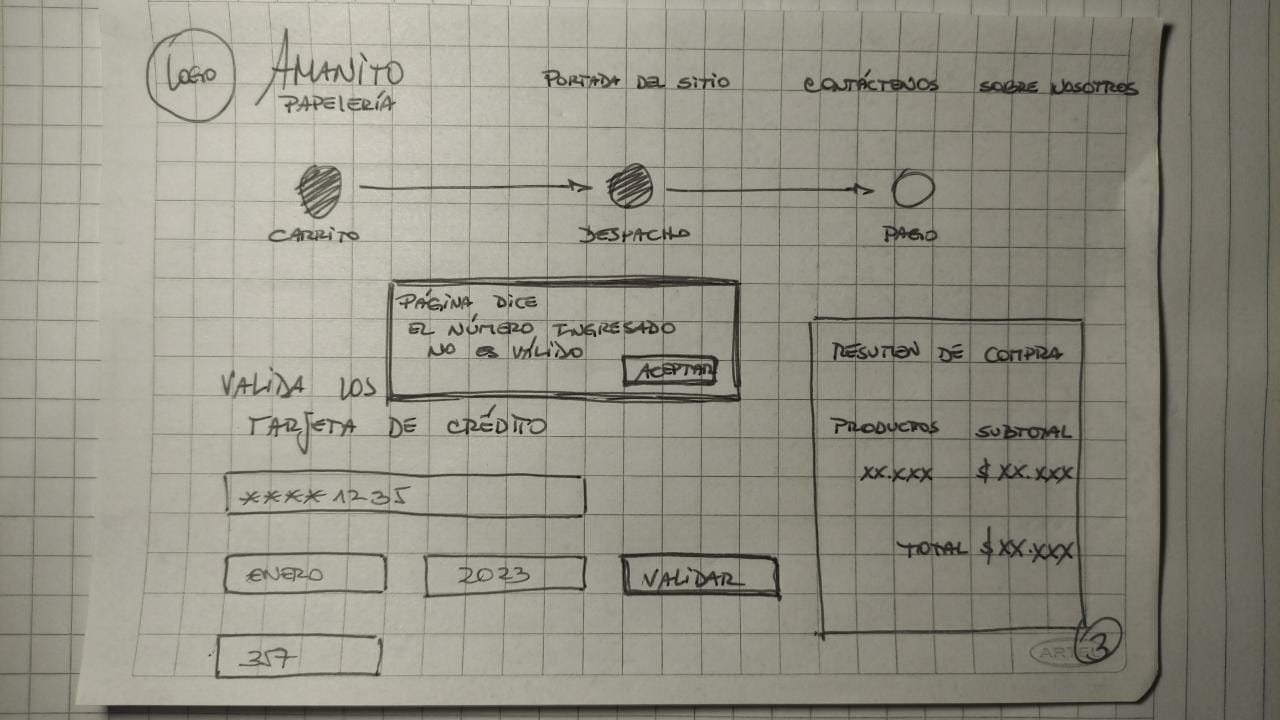 LOGO
AMANITO
PAPELERÍA
PORTADA DEL SITIO
CONTÁCTENOS
SOBRE NOSOTROS
CARRITO
DESPACHO
PAGO
PÁGINA DICE
EL NÚMERO INGRESADO
NO ES VÁLIDO
ACEPTAR
VALIDA LOS
TARJETA DE CRÉDITO
****1235
ENERO
2023
VALIDAR
357
RESUMEN DE COMPRA
PRODUCTOS SUBTOTAL
XX.XXX $XX.XXX
TOTAL $XX.XXX
3